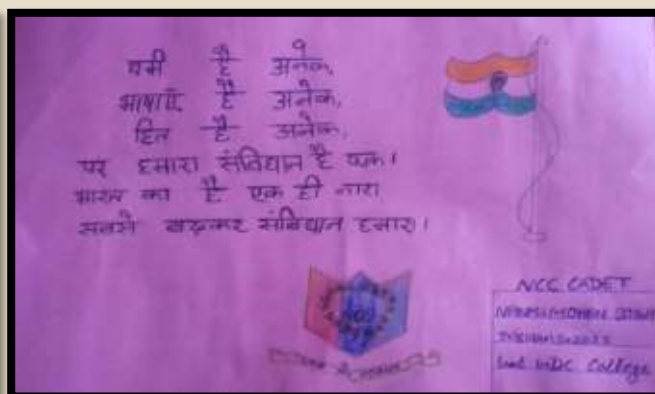 धर्म है अनेक,
भाषाएँ है अनेक,
हित है अनेक,
पर हमारा संविधान है एक।
भारत का है एक ही नारा
सबसे बढ़कर संविधान हमारा।
NCC CADET
College